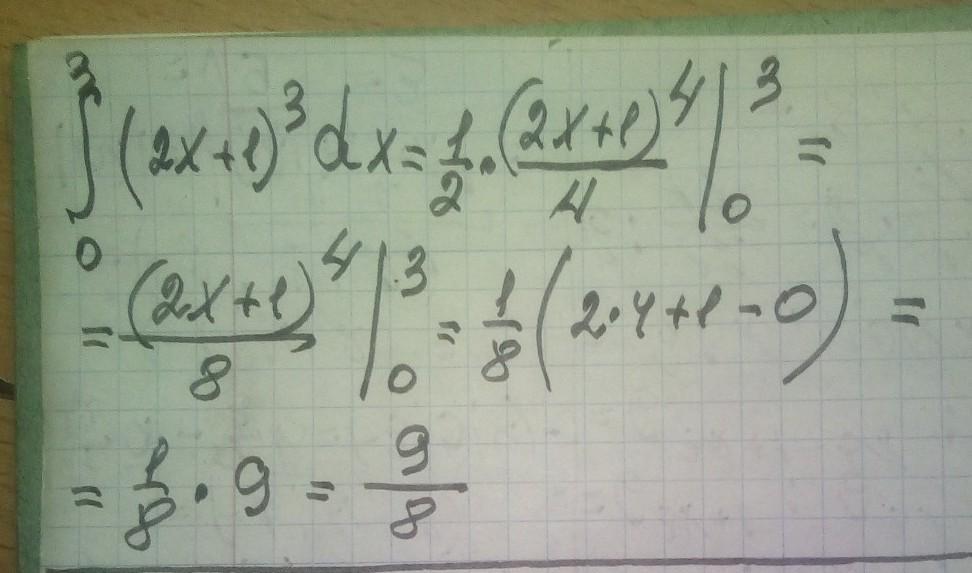 ∫₀³ (2x+1)³ dx = 1/2 · (2x+1)⁴/4 |₀³ =
= (2x+1)⁴/8 |₀³ = 1/8 (2·4+1-0) =
= 1/8 · 9 = 9/8